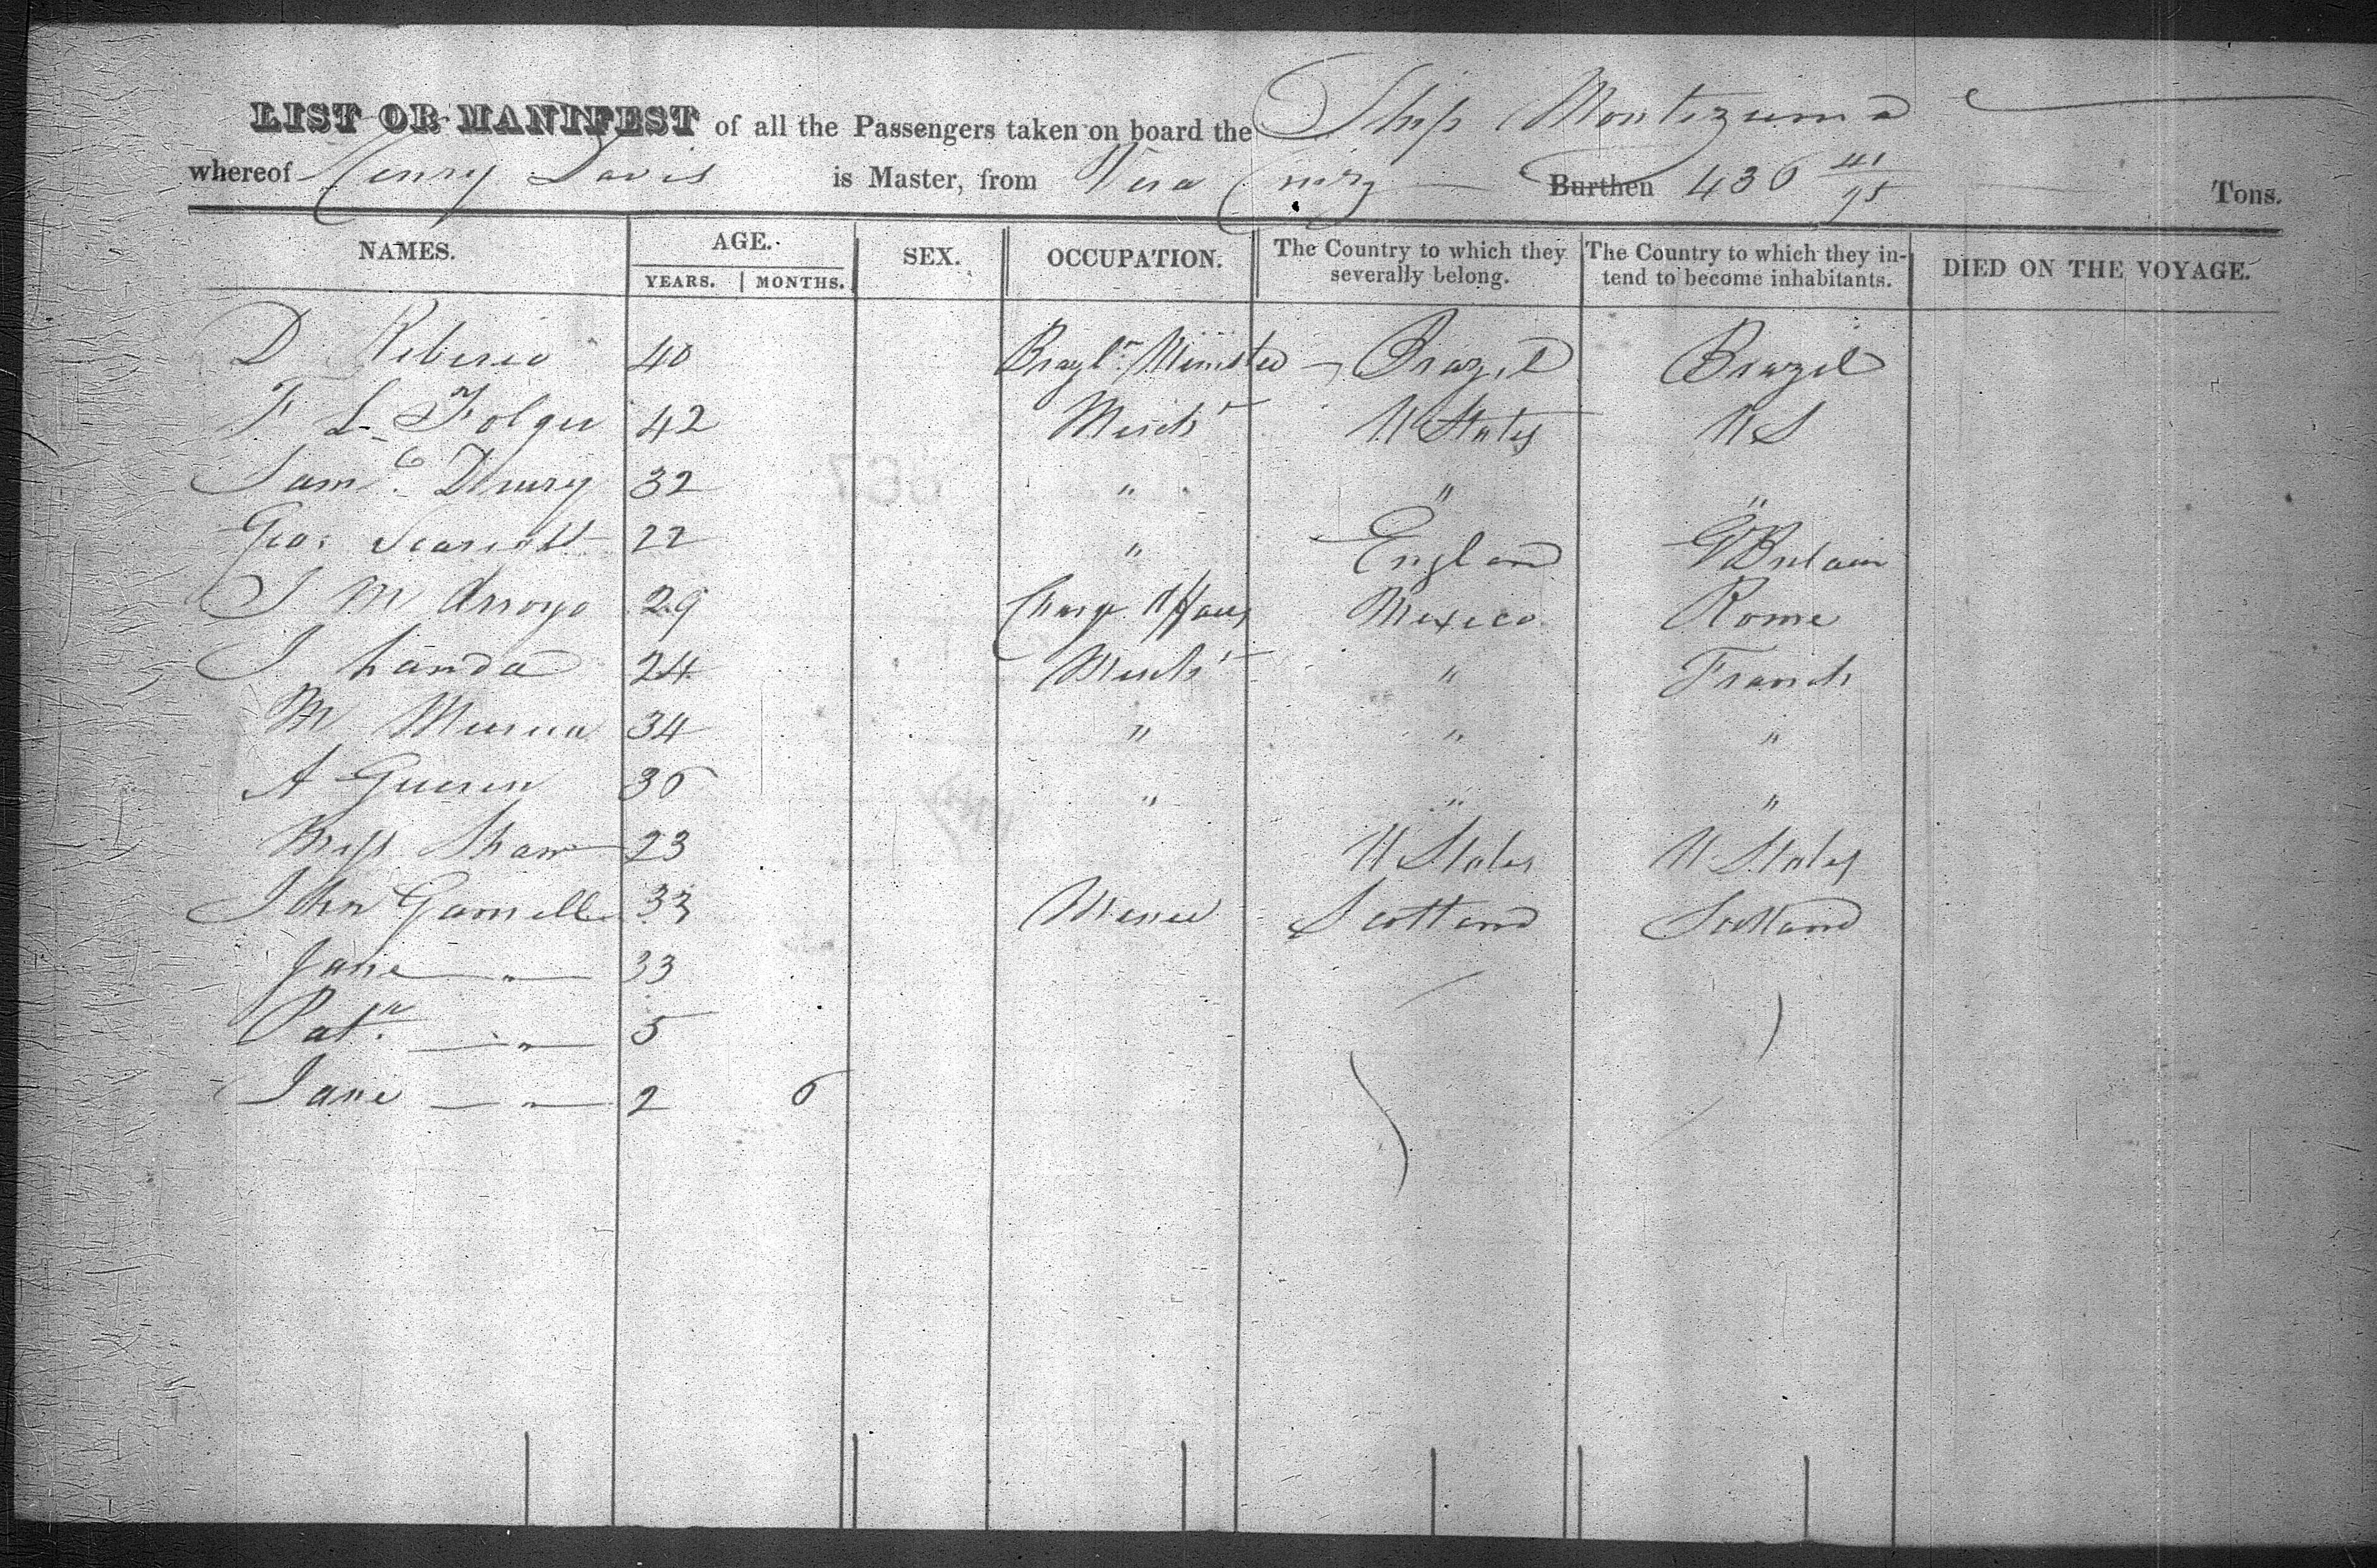 LIST OR MANIFEST of all the Passengers taken on board the Ship Montezuma
whereof Henry Davis is Master, from Vera Cruz Burthen 436 41/95 Tons.
NAMES. AGE. SEX. OCCUPATION. The Country to which they severally belong. The Country to which they intend to become inhabitants. DIED ON THE VOYAGE.
YEARS. MONTHS.
D Riberio 40 Brazl. Minister Brazil Brazil
F L Folger 42 Mercht U States U S
Saml. Drury 32 " " "
Geo. 22 " England G Britain
J M Arroyo 29 Charge Affairs Mexico Rome
J Landa 24 Mercht " Franch
M 34 " " "
A Guerin 36 " " "
Miss Shaw 23 U States U States
John Gamell 33 Miner Scotland Scotland
Jane " 33
Patk. " 5
Jane " 2 6